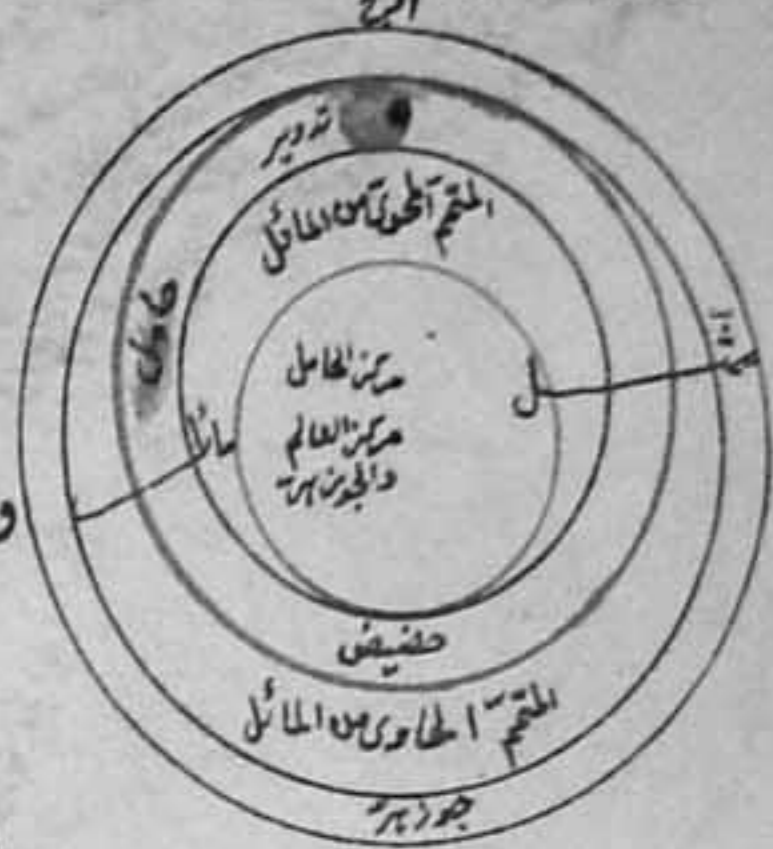 تدوير
المتمم المحوى من المائل
حامل
مركز الحامل
مركز العالم
والجوزهر
مائل
حضيض
المتمم الحاوى من المائل
جوزهر